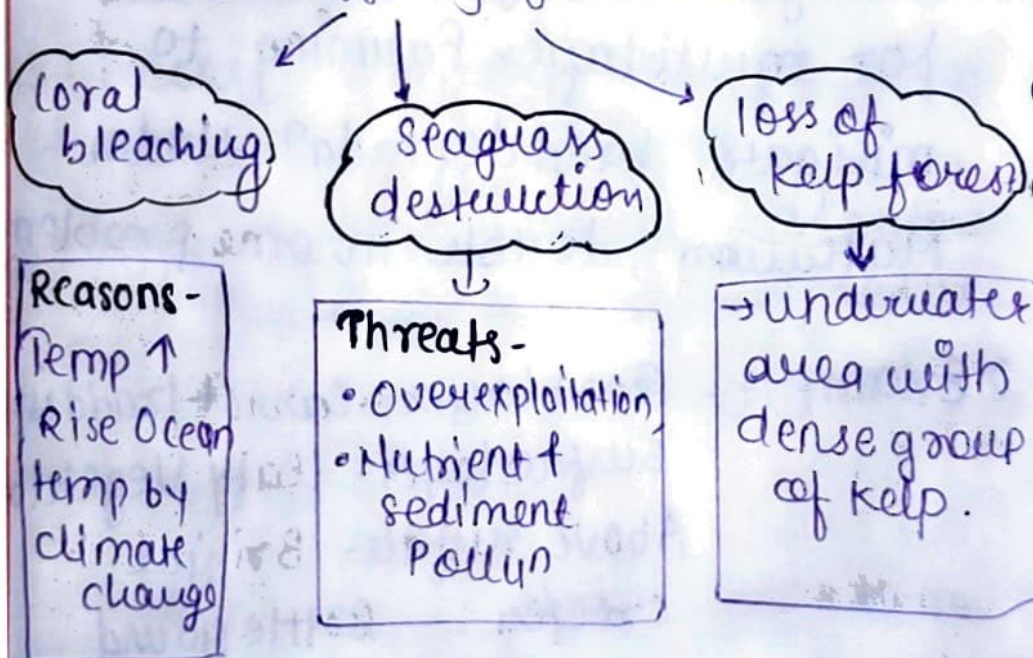 Coral
bleaching
Seagrass
destruction
loss of
kelp forest
Reasons-
Temp ↑
Rise Ocean
temp by
climate
change
Threats-
• Overexploitation
• Nutrient +
sediment
Pollun
→ underwater
area with
dense group
of kelp.